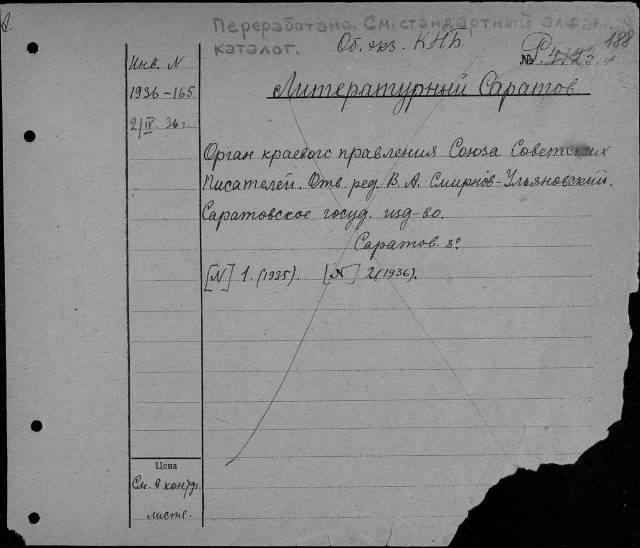 Переработано. См. стандартный
каталог.
Об. экз. КНБ.
188
Инв. N
1936-165
2/IV 36 г.
Литературный Саратов
Орган краевого правления Союза Советских
Писателей. Отв. ред. В. А. Смирнов-Ульяновский.
Саратовское госуд. изд-во.
Саратов. 8°
[N] 1. (1935). [N] 2 (1936).
Цена
См. в контр.
листе.